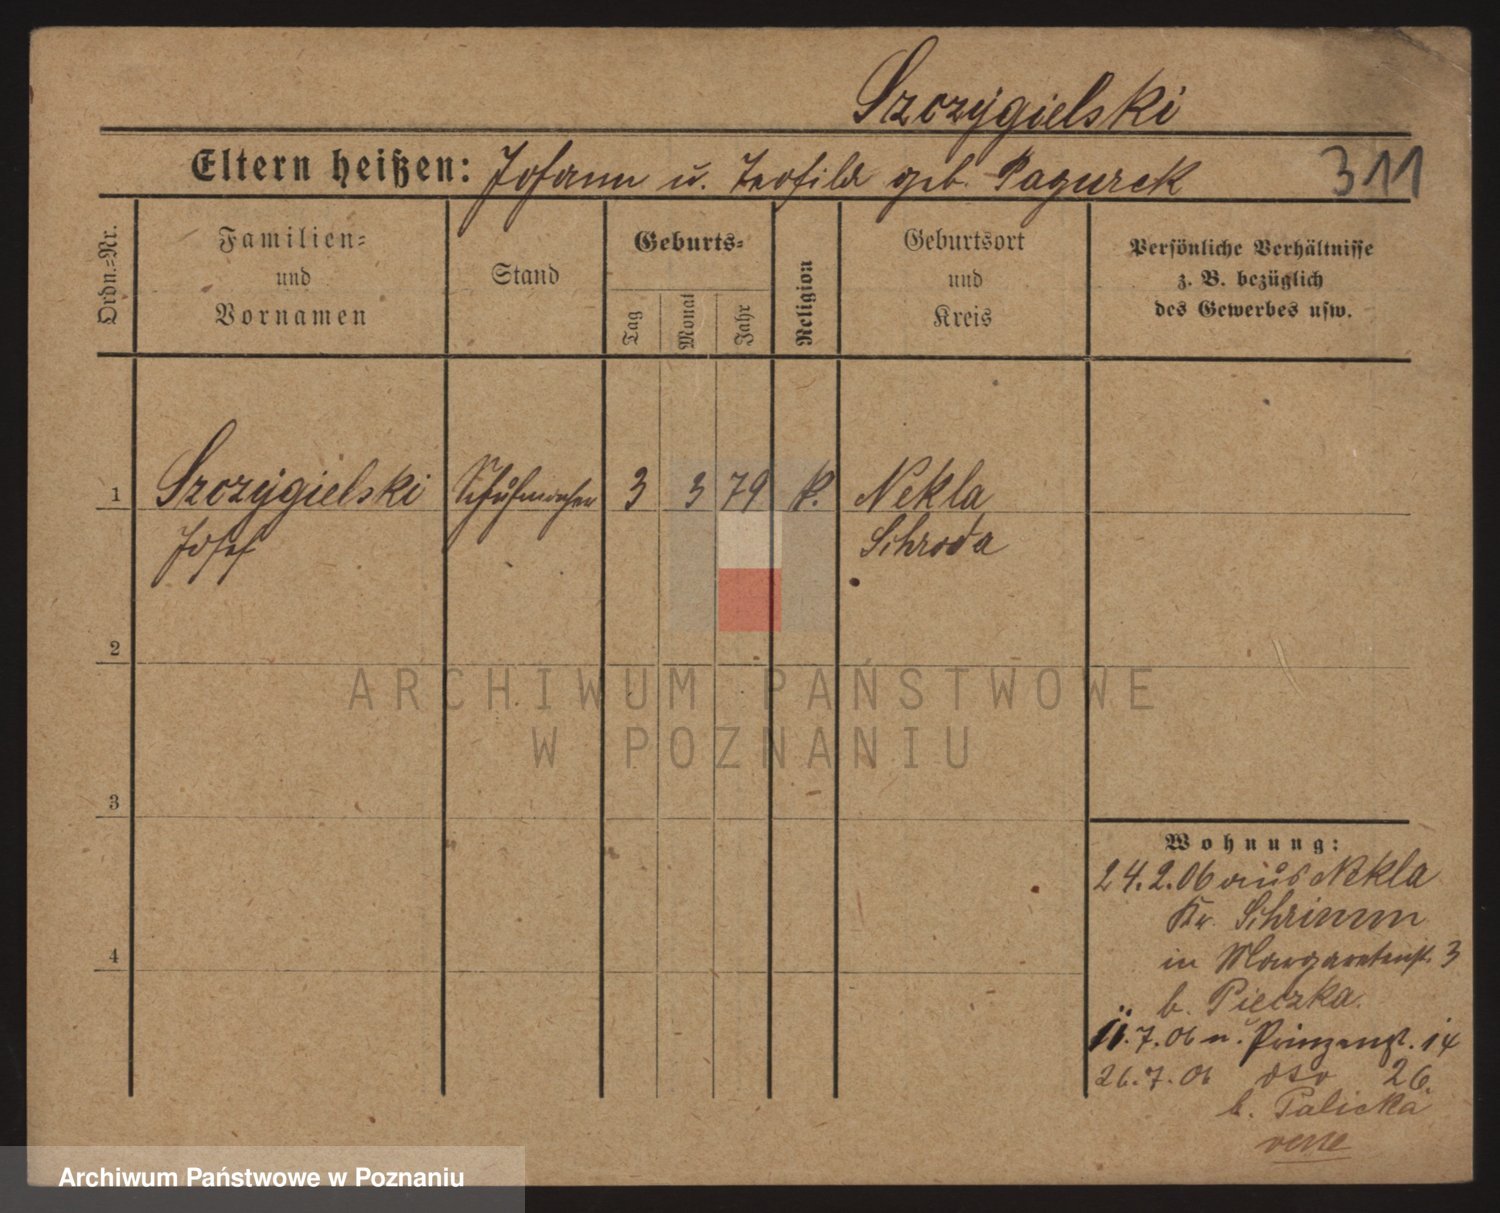 Szczygielski
Eltern heißen: Johann u. Teofila geb. Pagurek
311
Ordn.-Nr.
Familien-
und
Vornamen
Stand
Geburts-
Tag
Monat
Jahr
Religion
Geburtsort
und
Kreis
Persönliche Verhältnisse
z. B. bezüglich
des Gewerbes usw.
1 Szczygielski Schuhmacher 3 3 79 k. Nekla
Josef Schroda
2
ARCHIWUM PAŃSTWOWE
W POZNANIU
3
Wohnung:
24.2.06 aus Nekla
Kr. Schrimm
in Margaretenst. 3
b. Pieczka.
11.7.06 n. Prinzenst. 14
26.7.06 dto 26.
b. Palicka
4
Archiwum Państwowe w Poznaniu